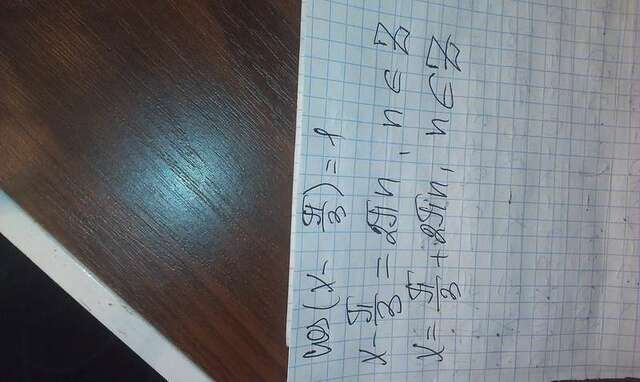 cos(x - π/3) = 1
x - π/3 = 2πn, n ∈ Z
x = π/3 + 2πn, n ∈ Z